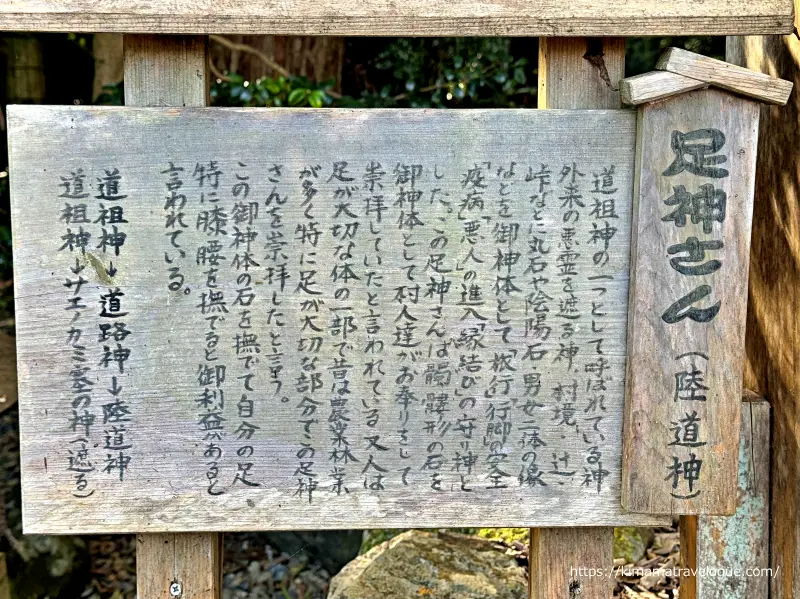 足神さん（陸道神）
道祖神の一つとして呼ばれている神
外来の悪霊を遮る神、村境、辻、
峠などに丸石や陰陽石・男女二体の像
などを御神体として「旅行」「行脚」の安全
「疫病」「悪人」の進入「縁結び」の守り神と
した。この足神さんは髑髏形の石を
御神体として村人達がお奉りをして
崇拝していたと言われている 又人は
足が大切な体の一部で昔は農業林業
が多く特に足が大切な部分でこの足神
さんを崇拝したと言う。
この御神体の石を撫でて自分の足
特に膝、腰を撫でると御利益があると
言われている。
道祖神→道路神→陸道神
道祖神→サエノカミ塞の神（遮る）
https://kimamatravelogue.com/